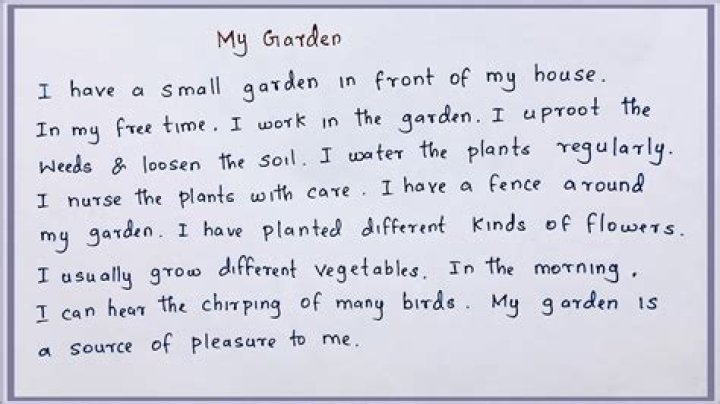 My Garden
I have a small garden in front of my house.
In my free time. I work in the garden. I uproot the
weeds & loosen the soil. I water the plants regularly.
I nurse the plants with care. I have a fence around
my garden. I have planted different kinds of flowers.
I usually grow different vegetables. In the morning.
I can hear the chirping of many birds. My garden is
a source of pleasure to me.